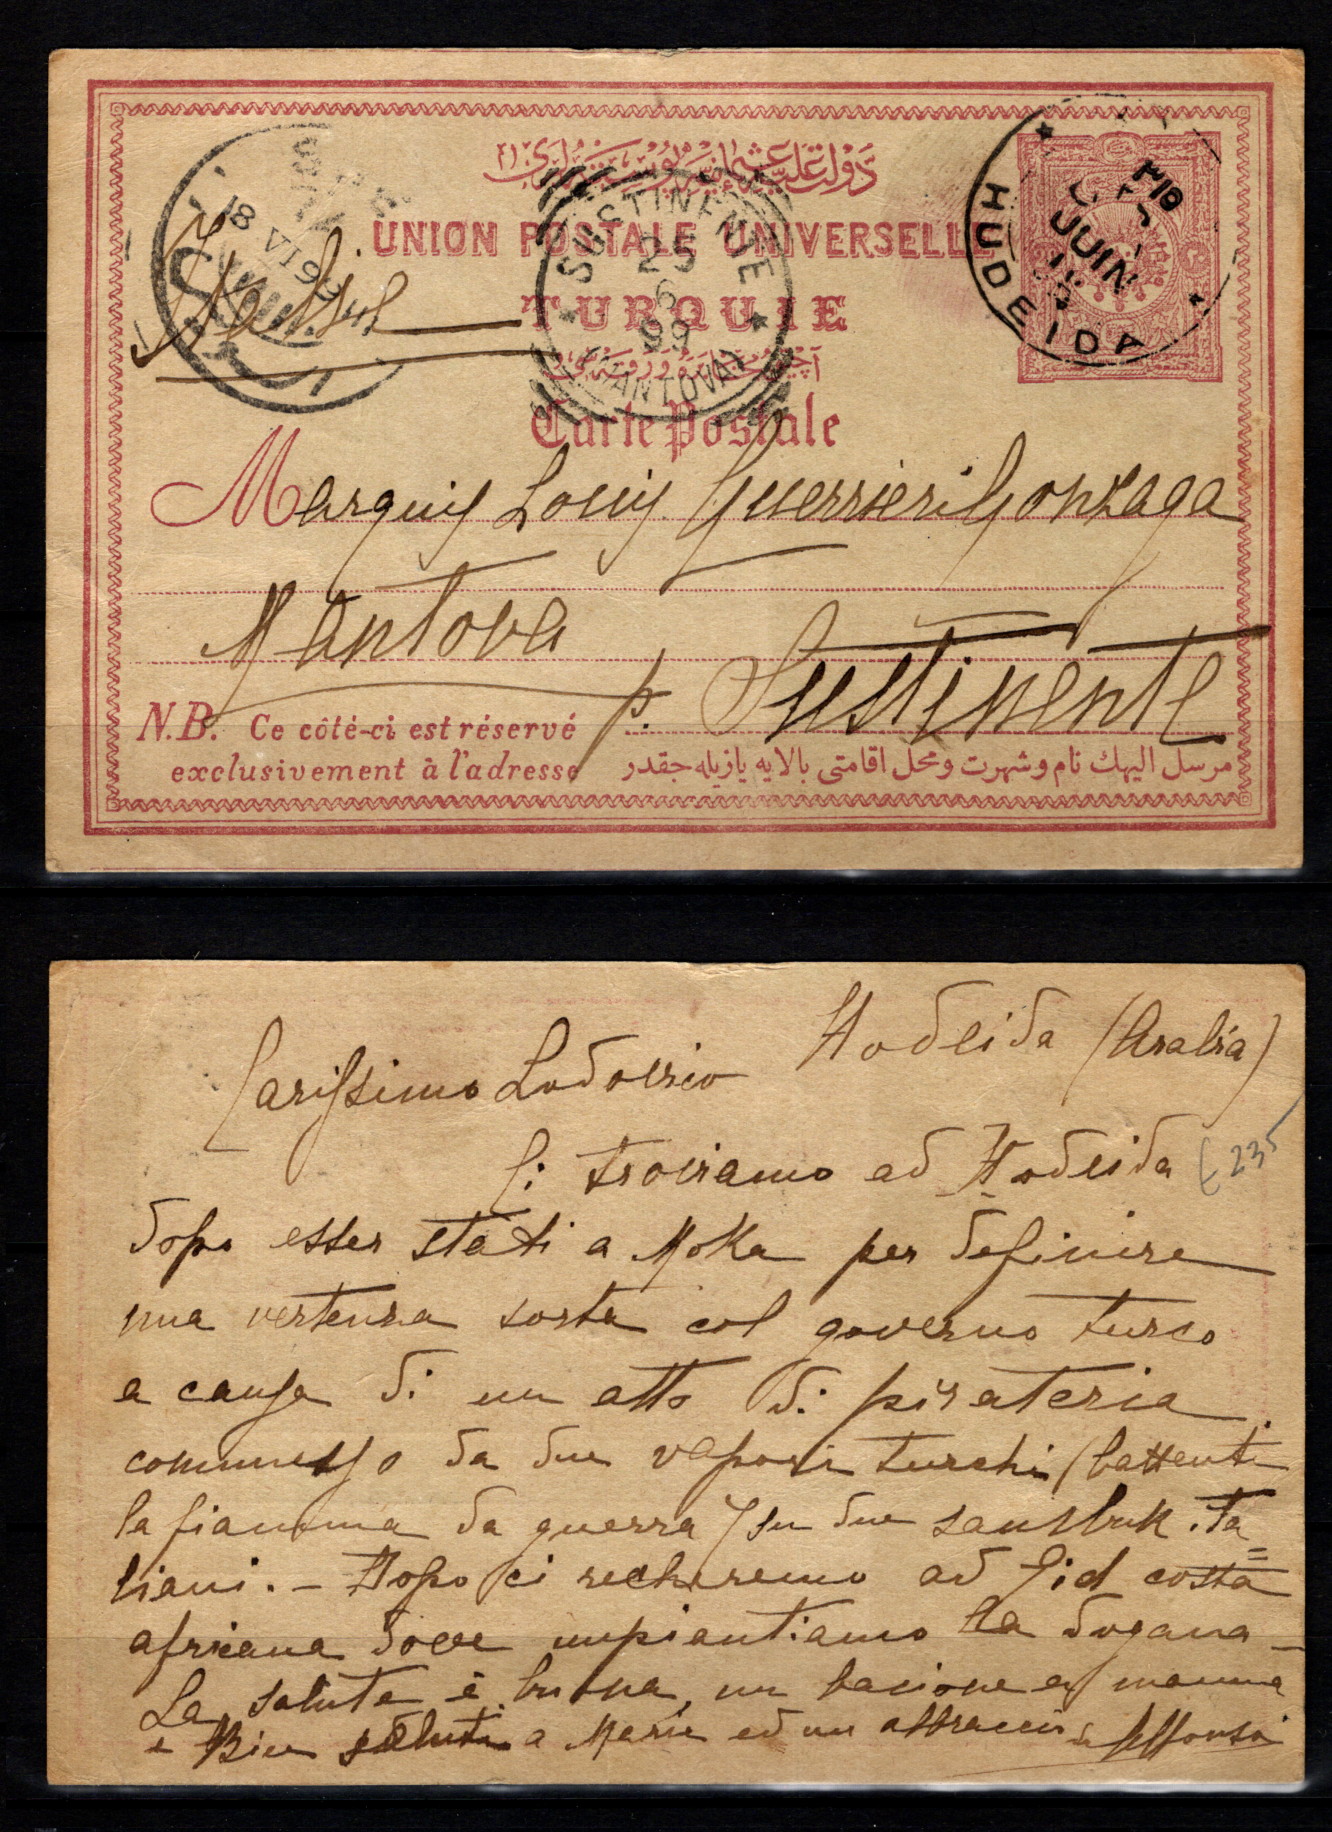 دولت عليۀ عثمانيه پوسته لرى
UNION POSTALE UNIVERSELLE
TURQUIE
Carte Postale
HUDEIDA
JUIN
٣١٥
SUSTINENTE
25
6
99
(MANTOVA)
18 VI 99
Marquis Louis Guerrieri Gonzaga
Mantova
p. Sustinente
N.B. Ce côté-ci est réservé
exclusivement à l'adresse
مرسل اليهك نام و شهرت و محل اقامتى بالايه يازيله جقدر
Hodeida (Arabia)
Carissimo Lodovico
Ci troviamo ad Hodeida
£ 235
dopo esser stati a Moka per definire
una vertenza sorta col governo turco
a causa di un atto di pirateria
commesso da due vapori turchi (battenti
la fiamma da guerra) su due sambuk ita=
liani. - Dopo ci recheremo ad Eid costa
africana dove impiantiamo la dogana -
La salute è buona, un bacione a mamma
e Bice saluti a Maria ed un abbraccio da Alfonso